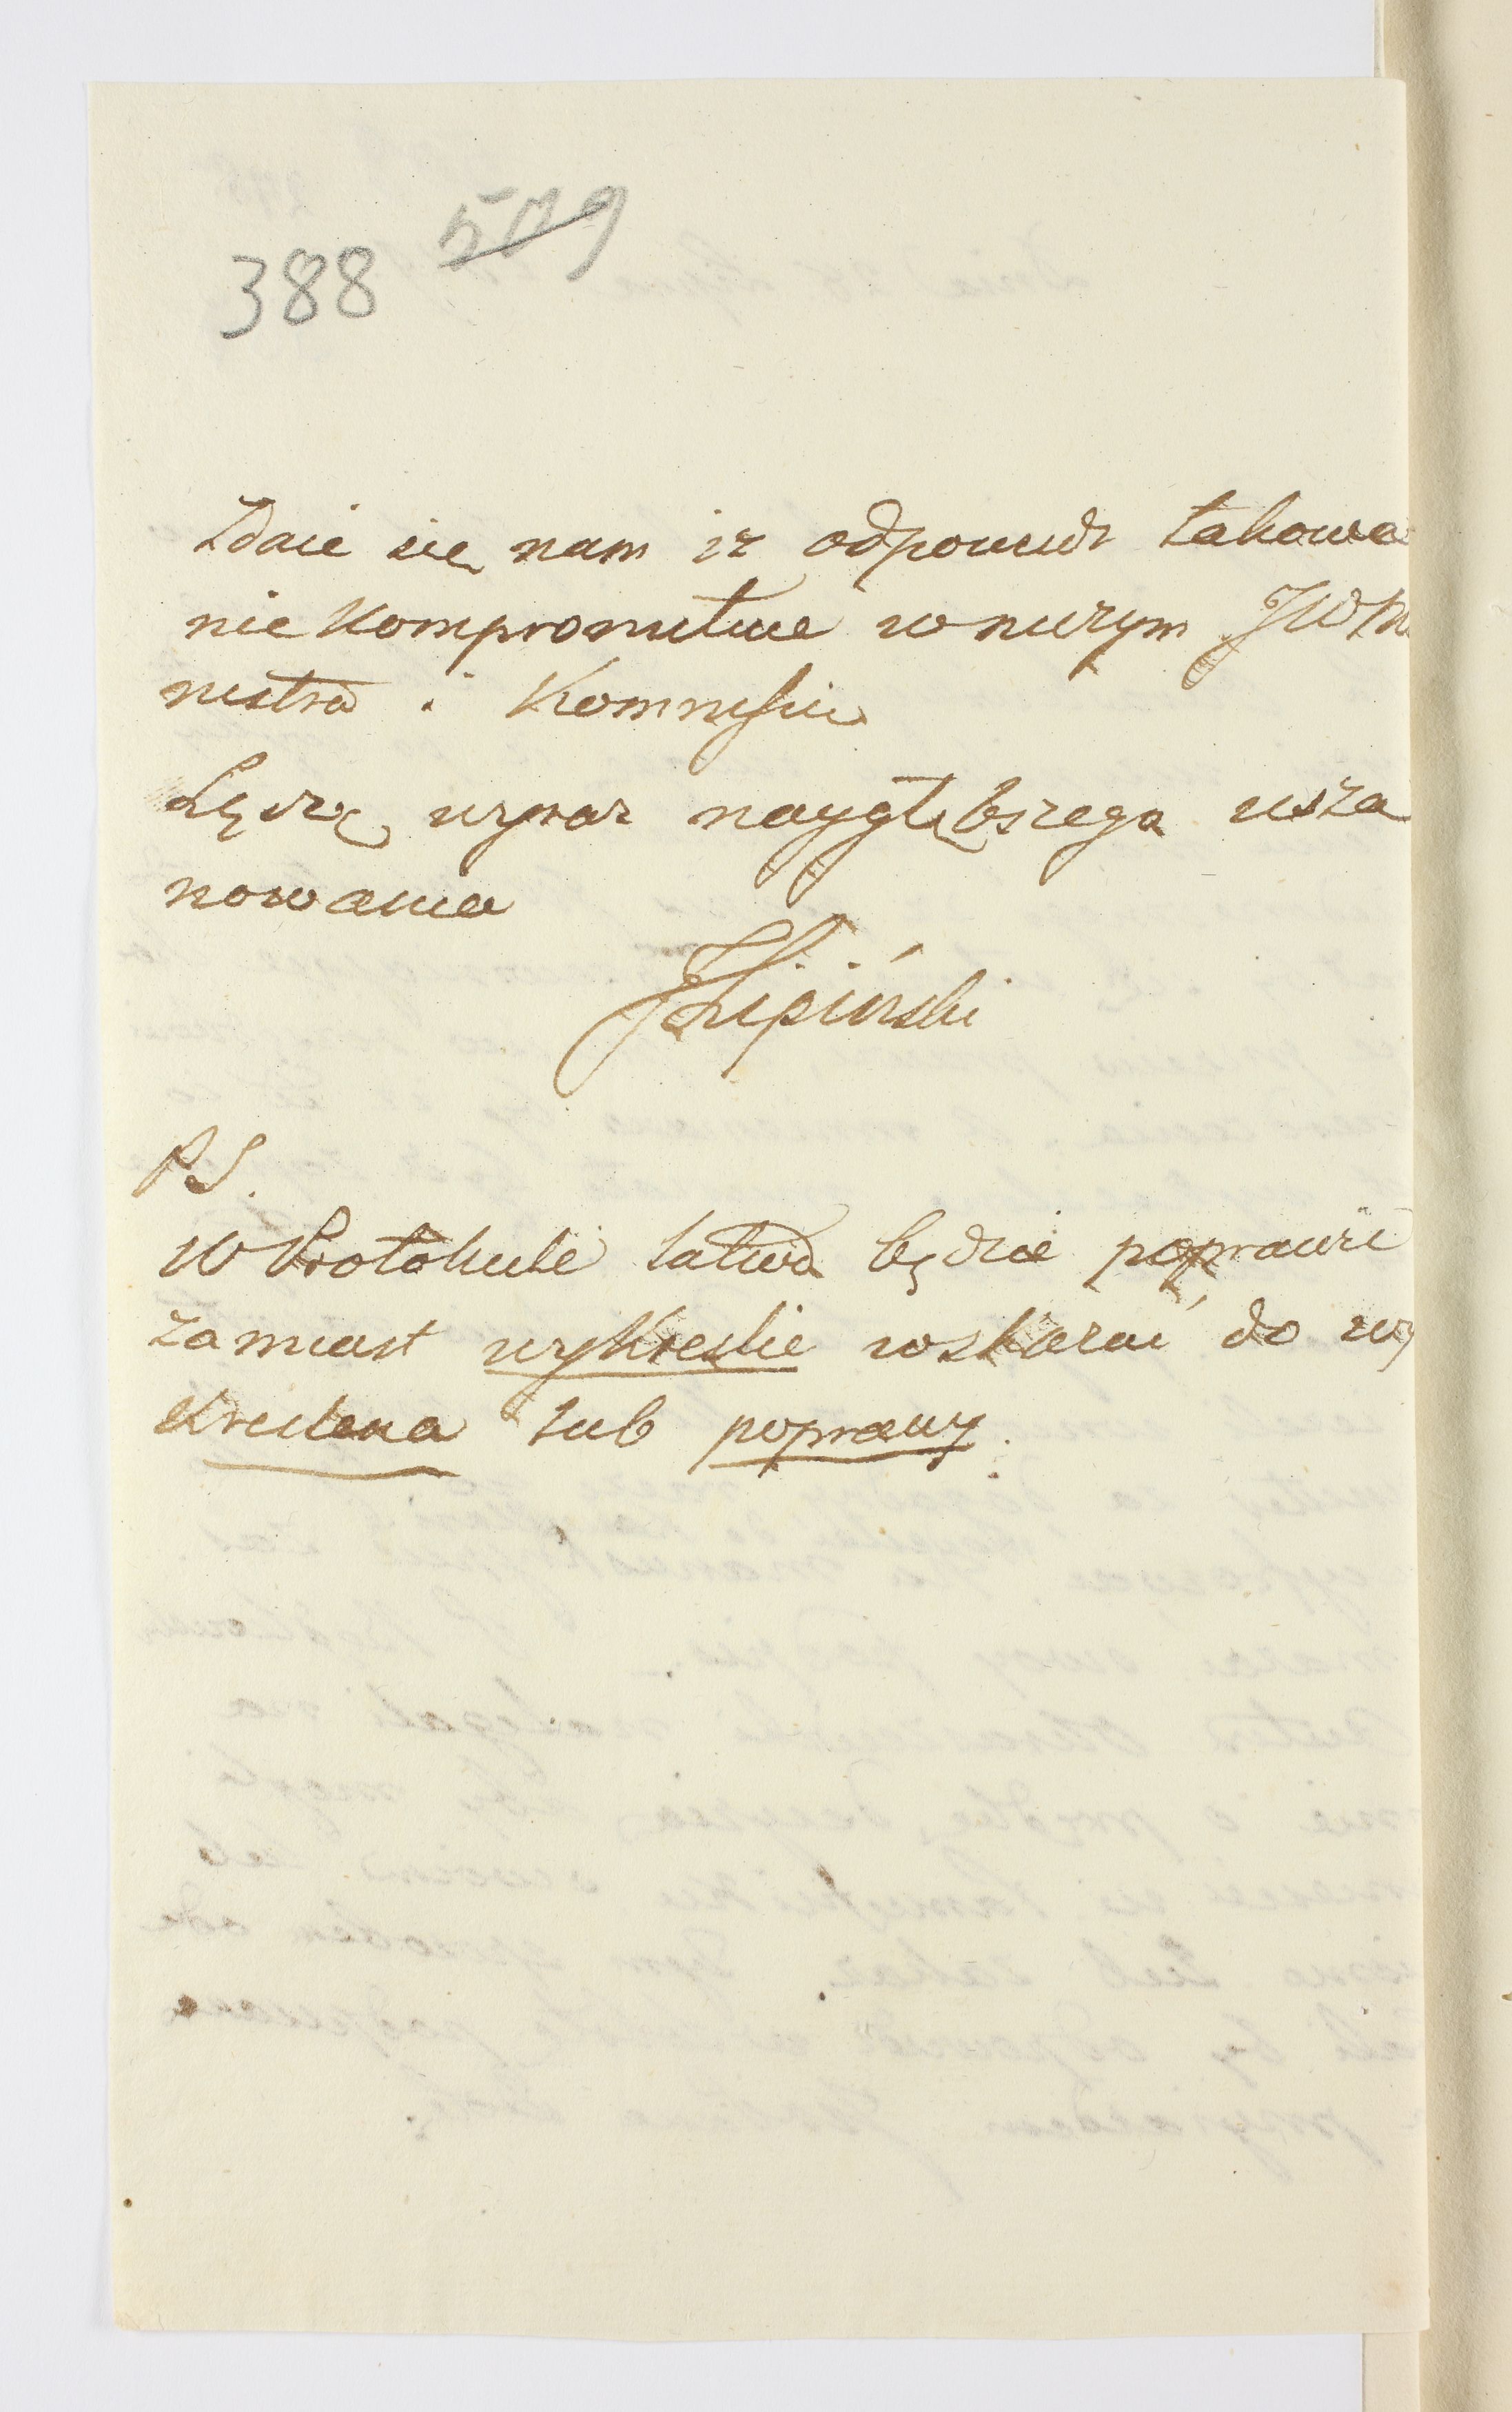 388 509
Zdaie się nam iż odpowiedź takowa
nie kompromituie w niczym JW Mi
nistra i Kommissiu
Łączę wyraz naygłębszego usza
nowania
JLipiński
P.S.
W Protokule łatwo będzie poprawić
zamiast wykreślić wskazać do wy
kreślenia lub poprawy.